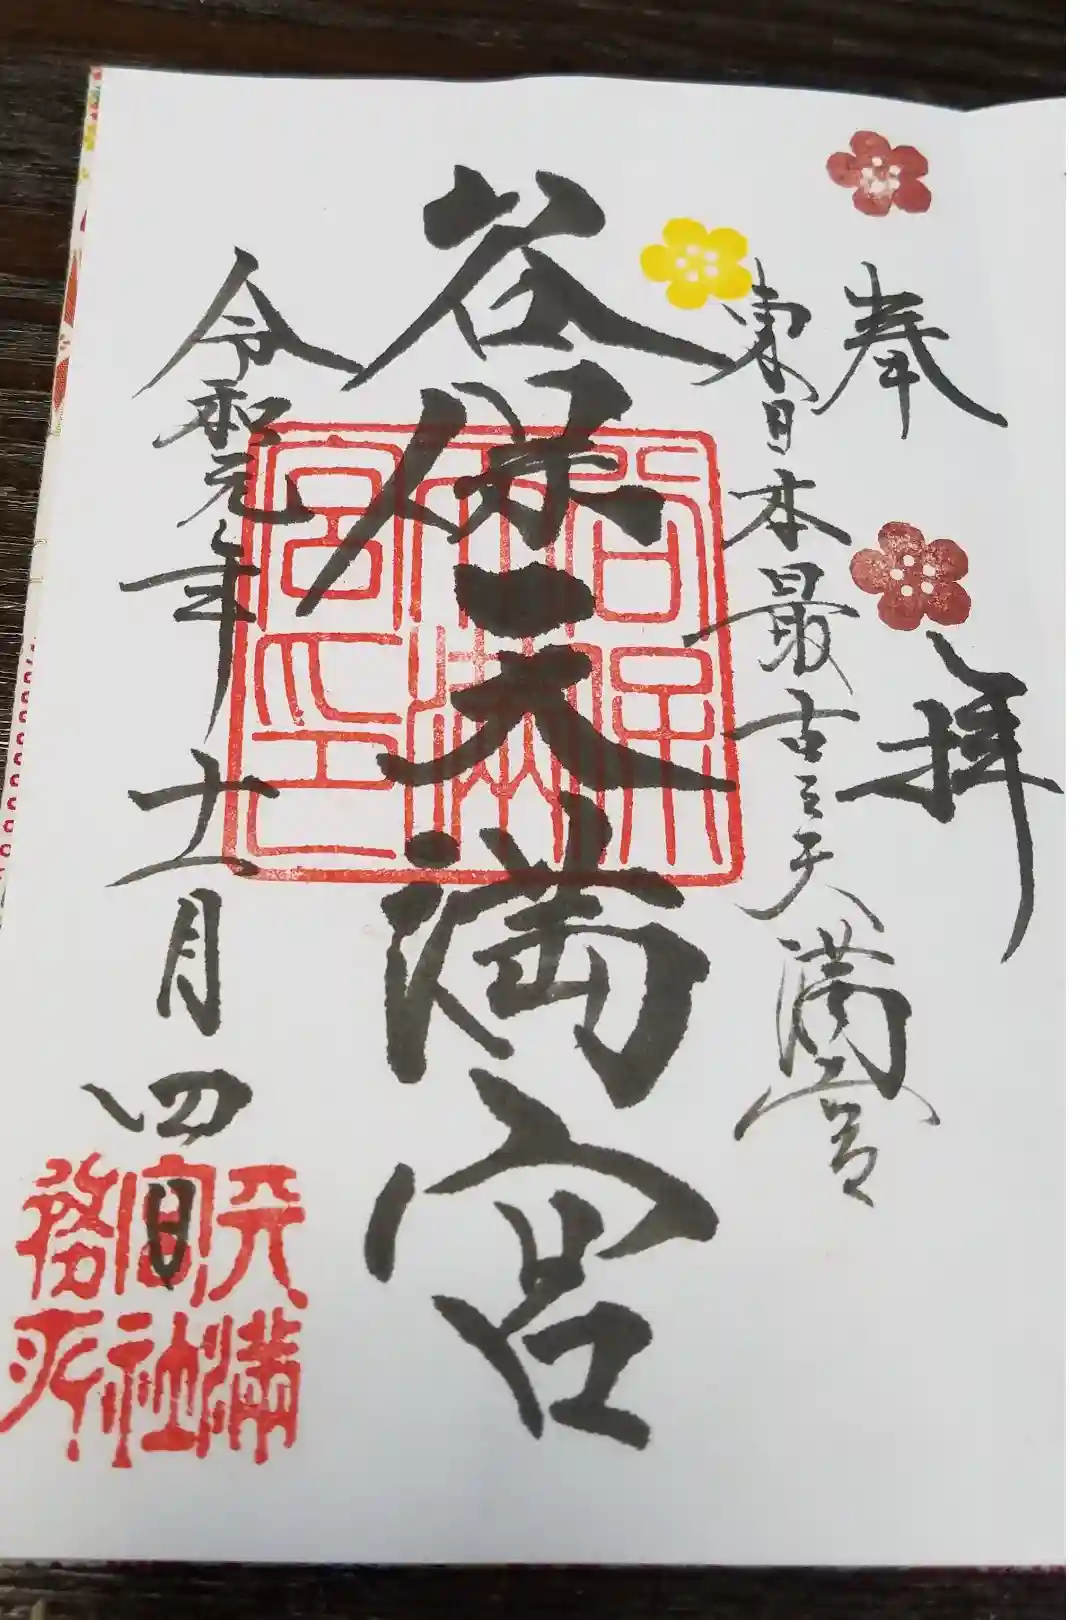 奉拝
東日本最古之天満宮
谷保天満宮
谷保
天満
宮印
令和元年十一月四日
天満
宮社
務所